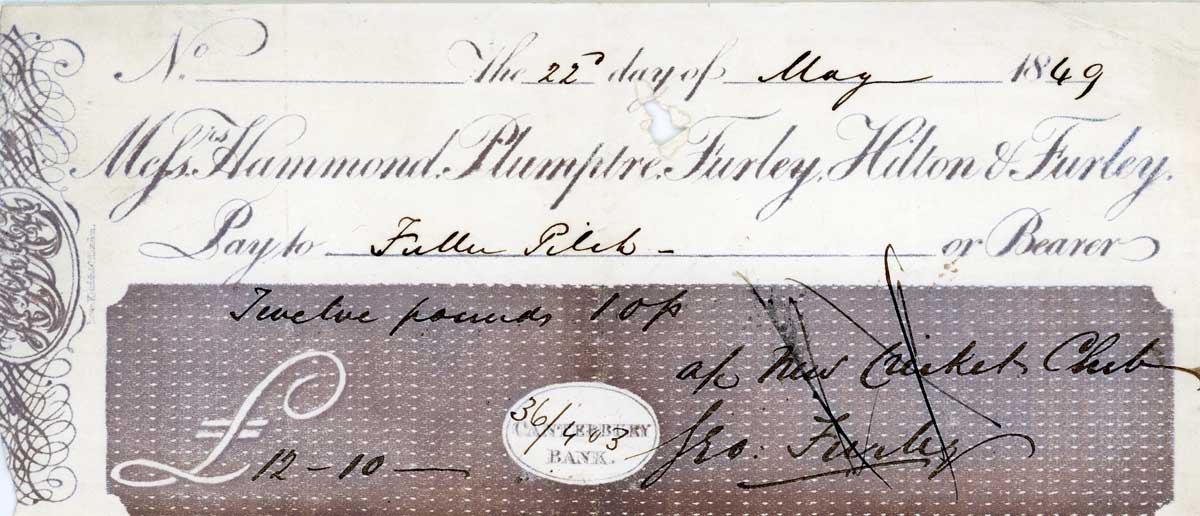 No. The 22d day of May 1849
Messrs. Hammond, Plumptre, Furley, Hilton & Furley.
Pay to Fuller Pilch or Bearer
Twelve pounds 10/-
a/c New Cricket Club
£ 12-10-
36/403
CANTERBURY
BANK.
Geo: Furley